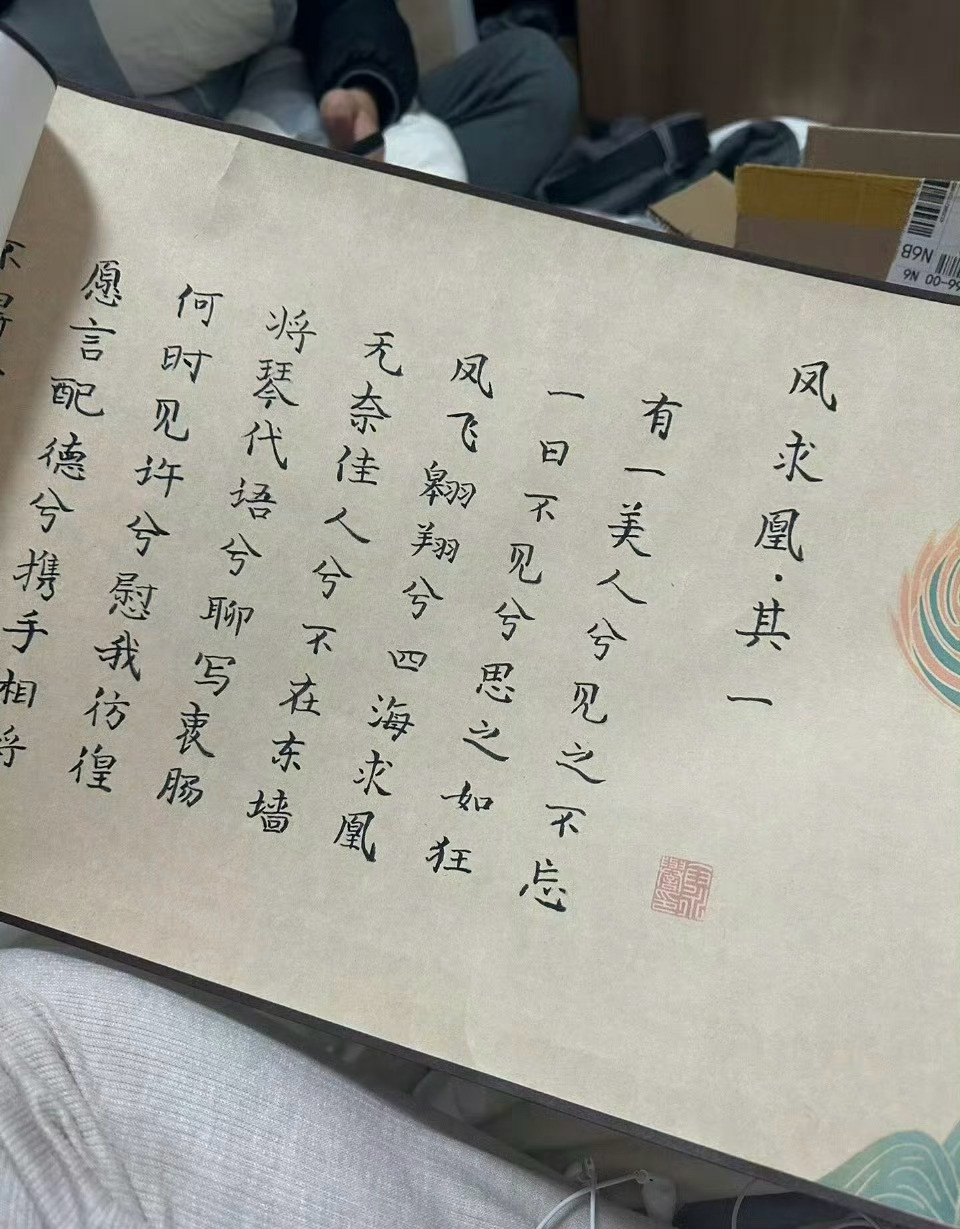 凤求凰·其一
有一美人兮见之不忘
一日不见兮思之如狂
凤飞翱翔兮四海求凰
无奈佳人兮不在东墙
将琴代语兮聊写衷肠
何时见许兮慰我彷徨
愿言配德兮携手相将